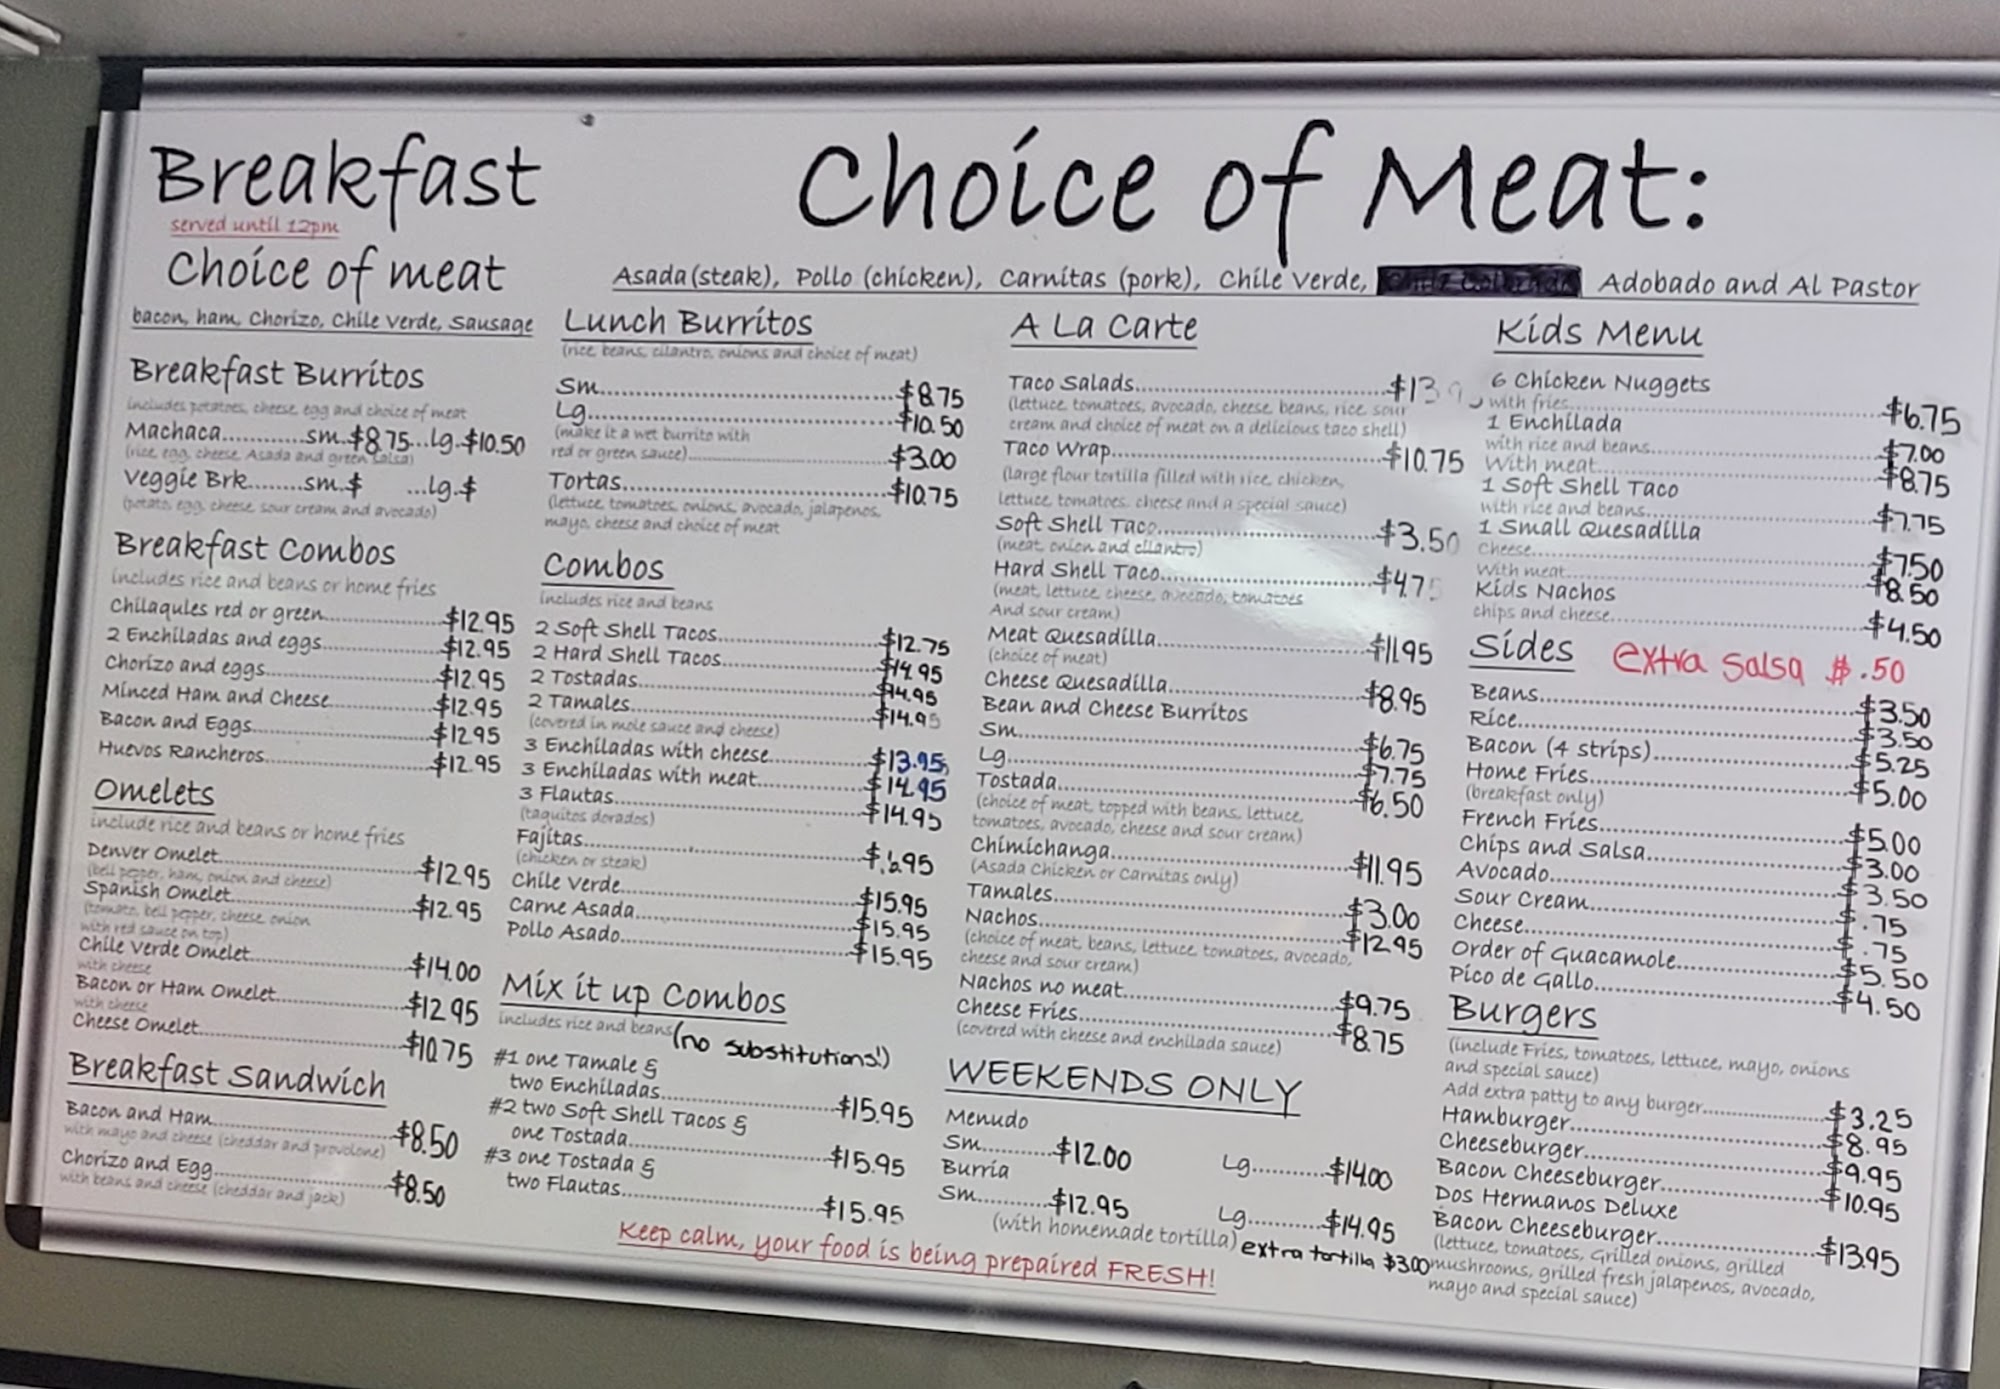 Breakfast
served until 12pm
Choice of meat
bacon, ham, Chorizo, Chile Verde, Sausage
Breakfast Burritos
includes potatoes, cheese, egg and choice of meat
Machaca............sm.$8.75...lg.$10.50
(rice, egg, cheese, Asada and green salsa)
Veggie Brk........sm.$ ...lg.$
(potato, egg, cheese, sour cream and avocado)
Breakfast Combos
includes rice and beans or home fries
Chilaqules red or green........$12.95
2 Enchiladas and eggs........$12.95
Chorizo and eggs........$12.95
Minced Ham and Cheese........$12.95
Bacon and Eggs........$12.95
Huevos Rancheros........$12.95
Omelets
include rice and beans or home fries
Denver Omelet........$12.95
(bell pepper, ham, onion and cheese)
Spanish Omelet........$12.95
(tomato, bell pepper, cheese, onion
with red sauce on top)
Chile Verde Omelet........$14.00
with cheese
Bacon or Ham Omelet........$12.95
with cheese
Cheese Omelet........$10.75
Breakfast Sandwich
Bacon and Ham........$8.50
with mayo and cheese (cheddar and provolone)
Chorizo and Egg........$8.50
with beans and cheese (cheddar and jack)
Choice of Meat:
Asada (steak), Pollo (chicken), Carnitas (pork), Chile Verde, Adobado and Al Pastor
Lunch Burritos
(rice, beans, cilantro, onions and choice of meat)
Sm........$8.75
Lg........$10.50
(make it a wet burrito with
red or green sauce)........$3.00
Tortas........$10.75
(lettuce, tomatoes, onions, avocado, jalapenos,
mayo, cheese and choice of meat
Combos
includes rice and beans
2 Soft Shell Tacos........$12.75
2 Hard Shell Tacos........$14.95
2 Tostadas........$14.95
2 Tamales........$14.95
(covered in mole sauce and cheese)
3 Enchiladas with cheese........$13.95
3 Enchiladas with meat........$14.95
3 Flautas........$14.95
(taquitos dorados)
Fajitas........
(chicken or steak)
Chile Verde........$15.95
Carne Asada........$15.95
Pollo Asado........$15.95
Mix it up Combos
includes rice and beans (no substitutions!)
#1 one Tamale &
two Enchiladas........$15.95
#2 two Soft Shell Tacos &
one Tostada........$15.95
#3 one Tostada &
two Flautas........$15.95
A La Carte
Taco Salads........$13
(lettuce, tomatoes, avocado, cheese, beans, rice, sour
cream and choice of meat on a delicious taco shell)
Taco Wrap........$10.75
(large flour tortilla filled with rice, chicken,
lettuce, tomatoes, cheese and a special sauce)
Soft Shell Taco........$3.50
(meat, onion and cilantro)
Hard Shell Taco........$4.75
(meat, lettuce, cheese, avocado, tomatoes
And sour cream)
Meat Quesadilla........$11.95
(choice of meat)
Cheese Quesadilla........$8.95
Bean and Cheese Burritos
Sm........$6.75
Lg........$7.75
Tostada........$6.50
(choice of meat, topped with beans, lettuce,
tomatoes, avocado, cheese and sour cream)
Chimichanga........$11.95
(Asada Chicken or Carnitas only)
Tamales........$3.00
Nachos........$12.95
(choice of meat, beans, lettuce, tomatoes, avocado,
cheese and sour cream)
Nachos no meat........$9.75
Cheese Fries........$8.75
(covered with cheese and enchilada sauce)
WEEKENDS ONLY
Menudo
Sm........$12.00 Lg........$14.00
Burria
Sm........$12.95 Lg........$14.95
(with homemade tortilla) extra tortilla $3.00
Kids Menu
6 Chicken Nuggets
with fries........$6.75
1 Enchilada
with rice and beans........$7.00
With meat........$8.75
1 Soft Shell Taco
with rice and beans........$7.75
1 Small Quesadilla
Cheese........$7.50
With meat........$8.50
Kids Nachos
chips and cheese........$4.50
Sides extra salsa $.50
Beans........$3.50
Rice........$3.50
Bacon (4 strips)........$5.25
Home Fries........$5.00
(breakfast only)
French Fries........$5.00
Chips and Salsa........$3.00
Avocado........$3.50
Sour Cream........$.75
Cheese........$.75
Order of Guacamole........$5.50
Pico de Gallo........$4.50
Burgers
(include Fries, tomatoes, lettuce, mayo, onions
and special sauce)
Add extra patty to any burger........$3.25
Hamburger........$8.95
Cheeseburger........$9.95
Bacon Cheeseburger........$10.95
Dos Hermanos Deluxe
Bacon Cheeseburger........$13.95
(lettuce, tomatoes, Grilled onions, grilled
mushrooms, grilled fresh jalapenos, avocado,
mayo and special sauce)
Keep calm, your food is being prepaired FRESH!